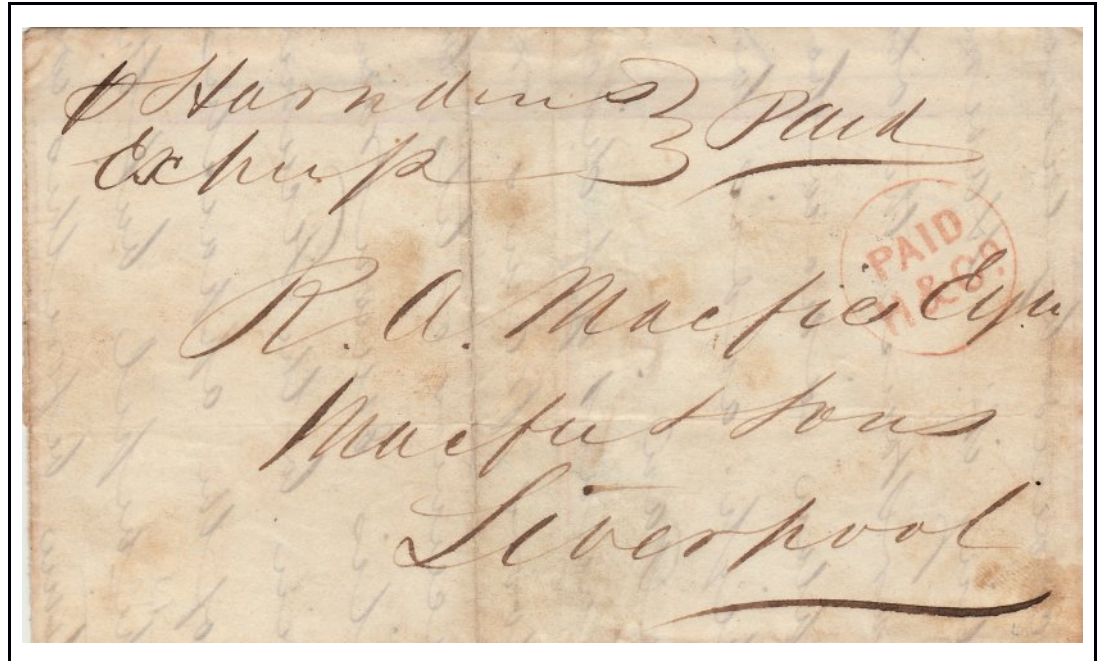 p Harndens
Express
Paid
PAID
H & Co.
R. A. Macfie Esqu
Macfie & Sons
Liverpool